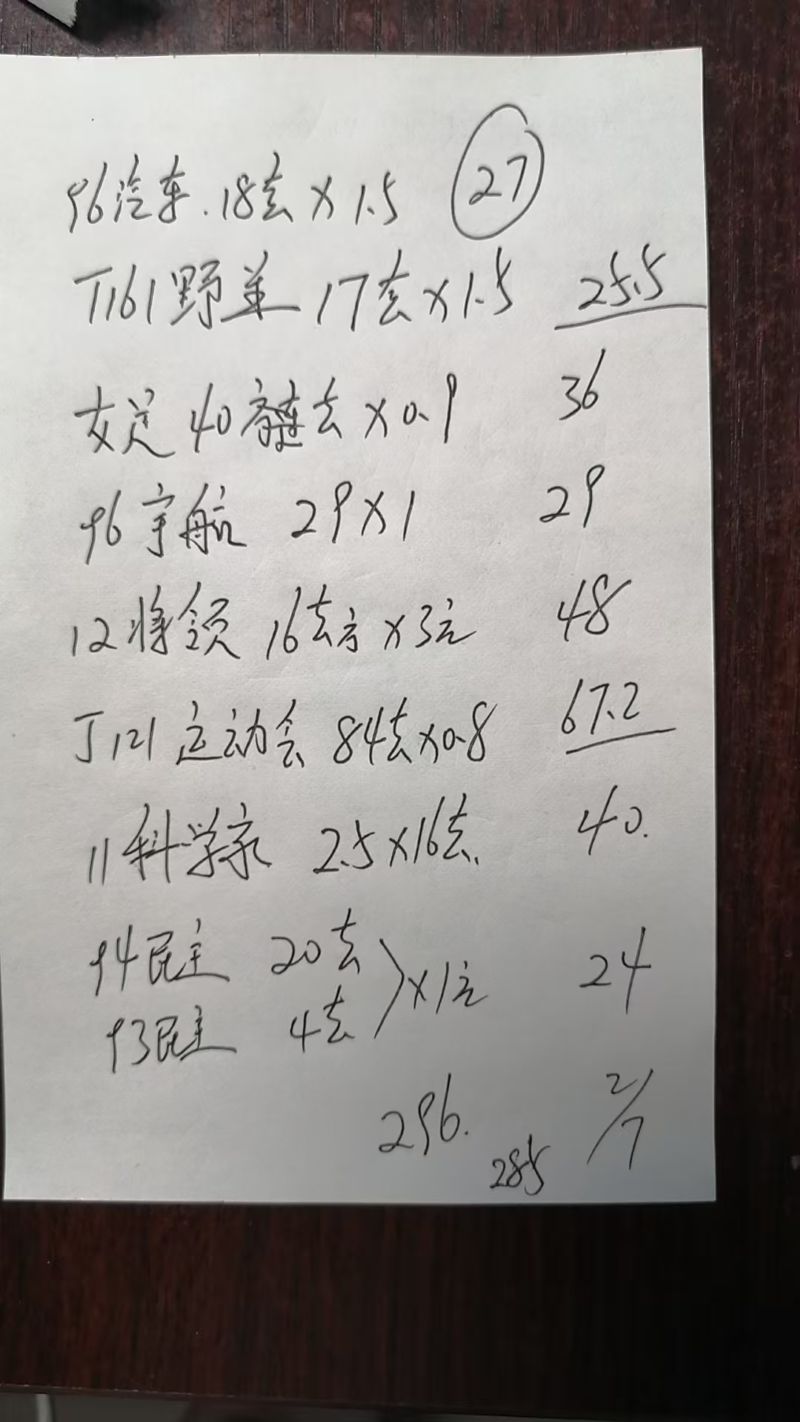 96汽车.18套×1.5 27
T161野羊 17套×1.5 25.5
女足 40套 ×0.9 36
96宇航 29×1 29
12将领 16套方×3元 48
J121运动会 84套×0.8 67.2
11科学家 2.5×16套. 40.
94民主 20套
93民主 4套 ×1元 24
296. 285 2/7